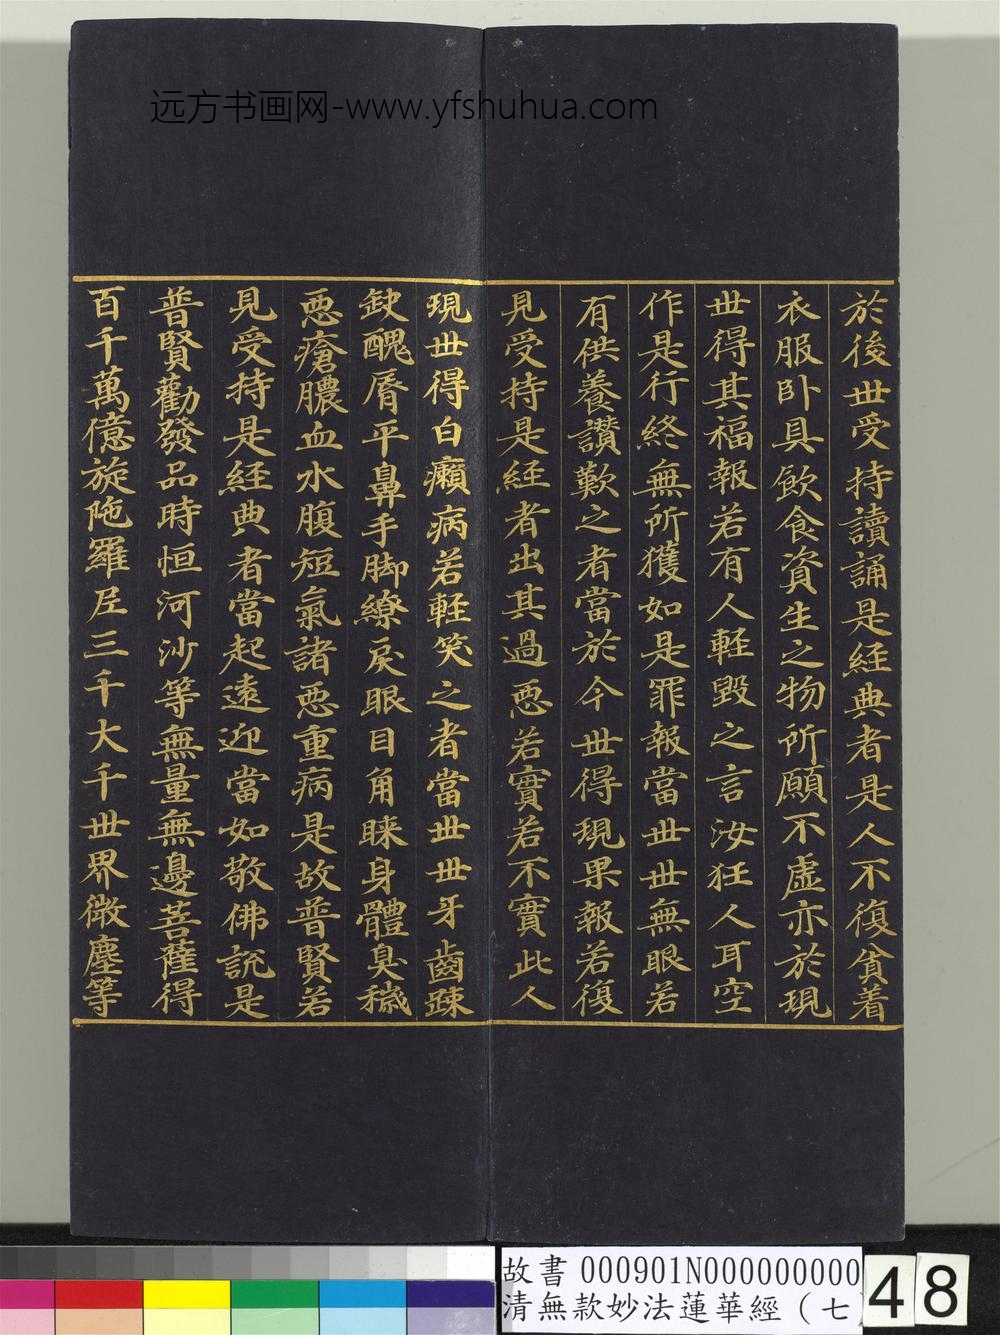 远方书画网-www.yfshuhua.com
於後世受持讀誦是經典者是人不復貪着
衣服卧具飲食資生之物所願不虛亦於現
世得其福報若有人輕毀之言汝狂人耳空
作是行終無所獲如是罪報當世世無眼若
有供養讚歎之者當於今世得現果報若復
見受持是經者出其過惡若實若不實此人
現世得白癩病若輕笑之者當世世牙齒踈
缺醜脣平鼻手脚繚戾眼目角睞身體臭穢
惡瘡膿血水腹短氣諸惡重病是故普賢若
見受持是經典者當起遠迎當如敬佛說是
普賢勸發品時恒河沙等無量無邊菩薩得
百千萬億旋陁羅尼三千大千世界微塵等
故書 000901N000000000
清無款妙法蓮華經（七
48